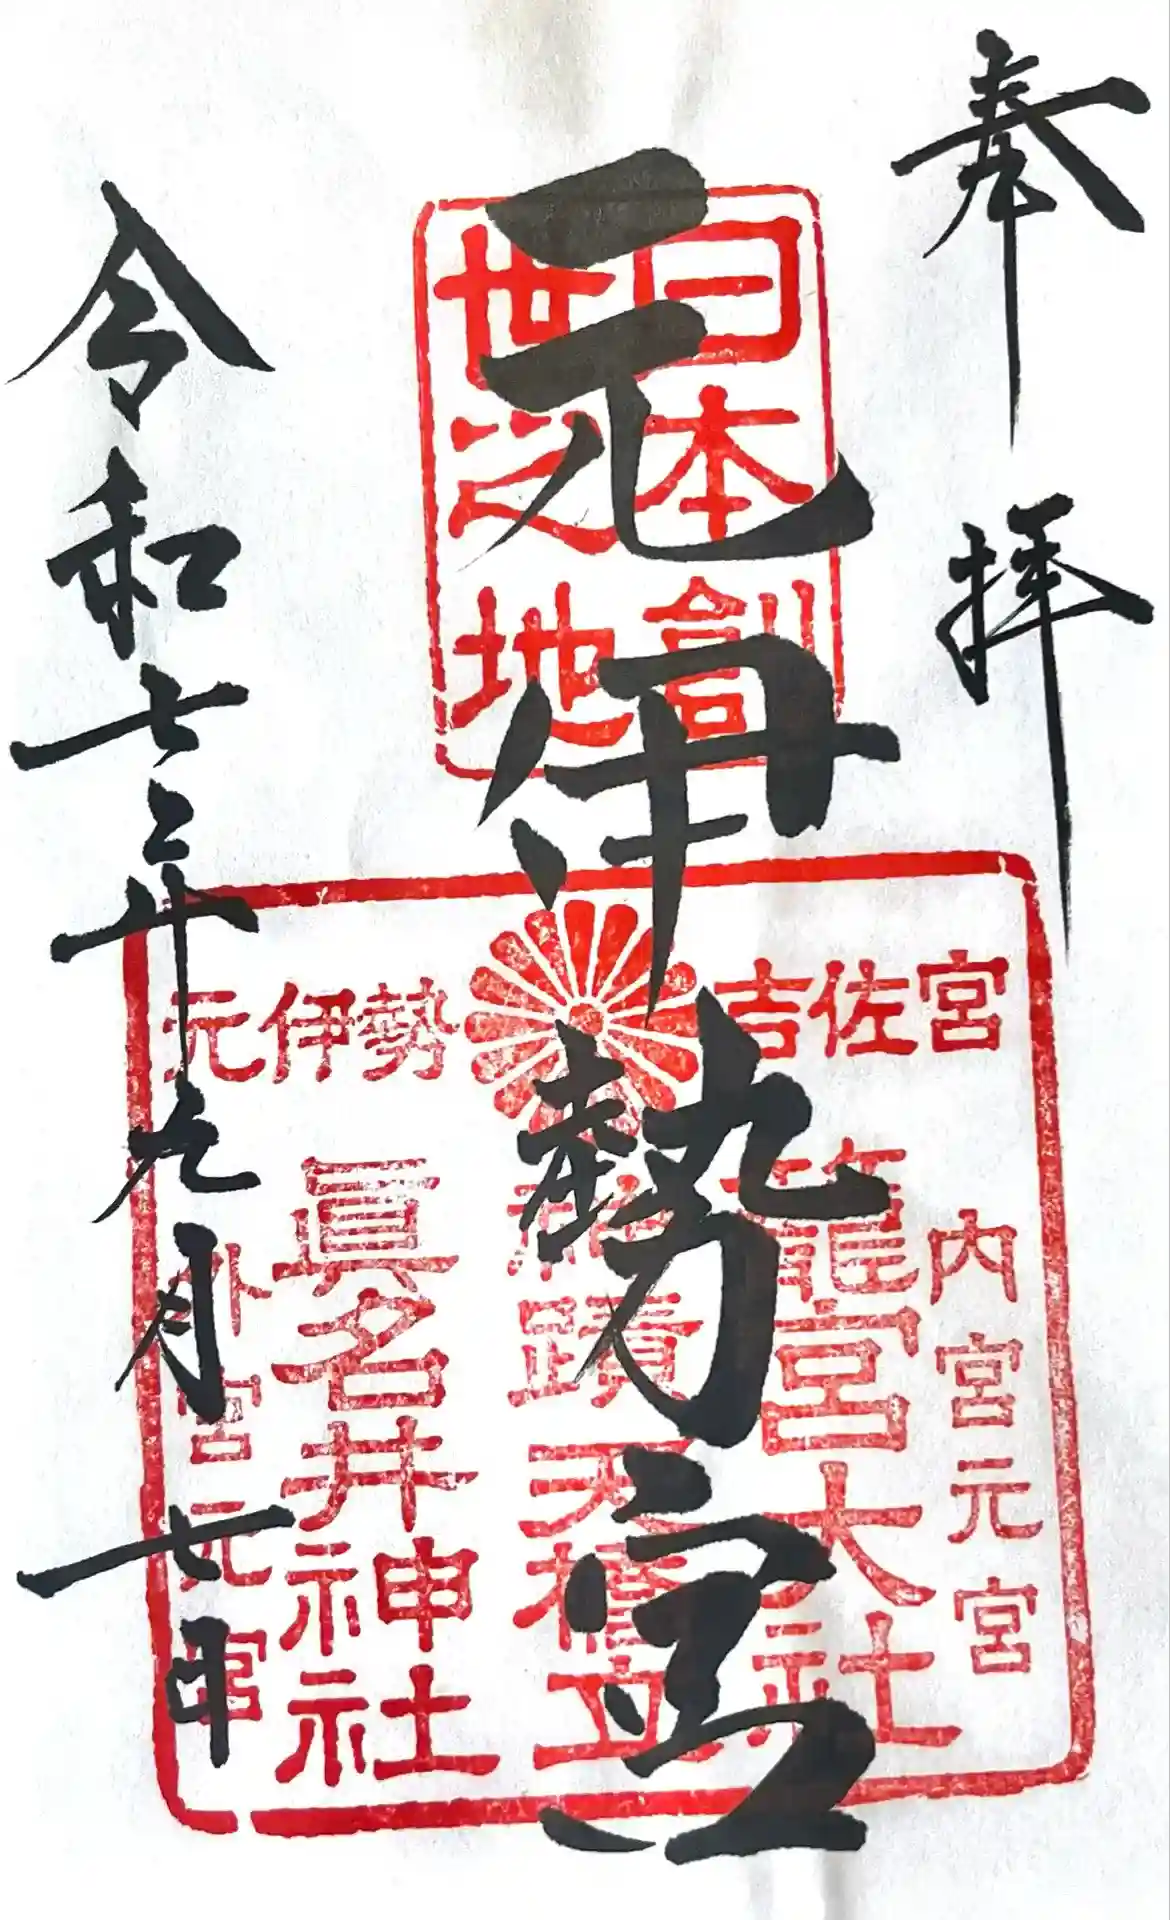 奉拝
元伊勢宮
令和七年九月七日
日本創
世之地
元伊勢
吉佐宮
内宮元宮
籠宮大社
神蹟天橋立
眞名井神社
外宮元宮